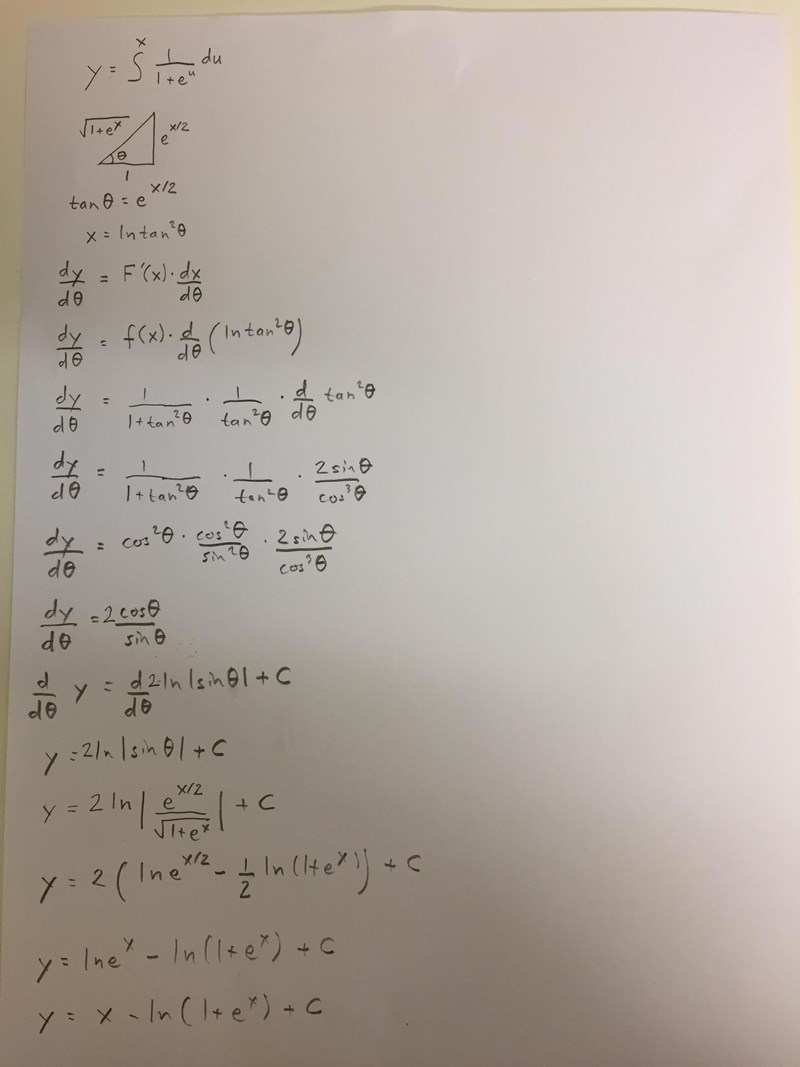 y = ∫^x 1/(1+e^u) du
√(1+e^x) e^(x/2)
θ
1
tanθ = e^(x/2)
x = ln tan²θ
dy/dθ = F'(x) · dx/dθ
dy/dθ = f(x) · d/dθ (ln tan²θ)
dy/dθ = 1/(1+tan²θ) · 1/tan²θ · d/dθ tan²θ
dy/dθ = 1/(1+tan²θ) · 1/tan²θ · 2sinθ/cos³θ
dy/dθ = cos²θ · cos²θ/sin²θ · 2sinθ/cos³θ
dy/dθ = 2cosθ/sinθ
d/dθ y = d/dθ 2ln|sinθ| + C
y = 2ln|sinθ| + C
y = 2 ln|e^(x/2)/√(1+e^x)| + C
y = 2(ln e^(x/2) - 1/2 ln(1+e^x)) + C
y = ln e^x - ln(1+e^x) + C
y = x - ln(1+e^x) + C